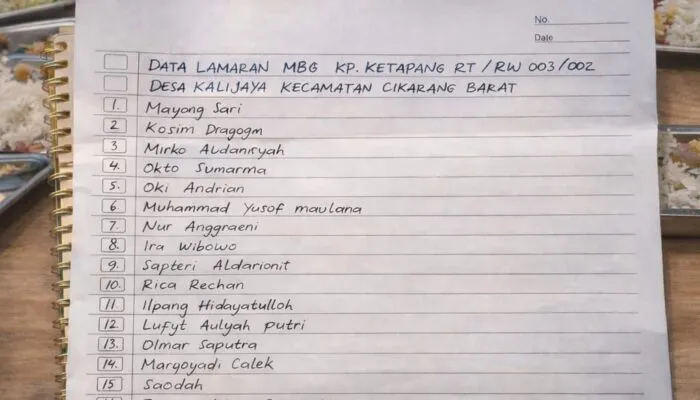 No.
Date
DATA LAMARAN MBG KP. KETAPANG RT / RW 003/002
DESA KALIJAYA KECAMATAN CIKARANG BARAT
1. Mayong Sari
2 Kosim Dragogm
3 Mirko Aldanryah
4. Okto Sumarma
5. Oki Andrian
6 Muhammad Yusof maulana
7. Nur Anggraeni
8. Ira Wibowo
9. Sapteri Aldarionit
10. Rica Rechan
11. Ilpang Hidayatulloh
12. Lufyt Aulyah putri
13. Olmar Saputra
14. Margoyadi Calek
15 Saodah